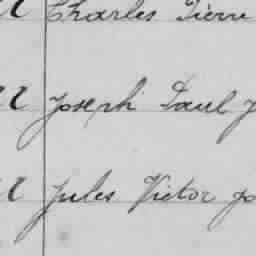 Charles Pierre
Joseph Paul J
Jules Victor Jo